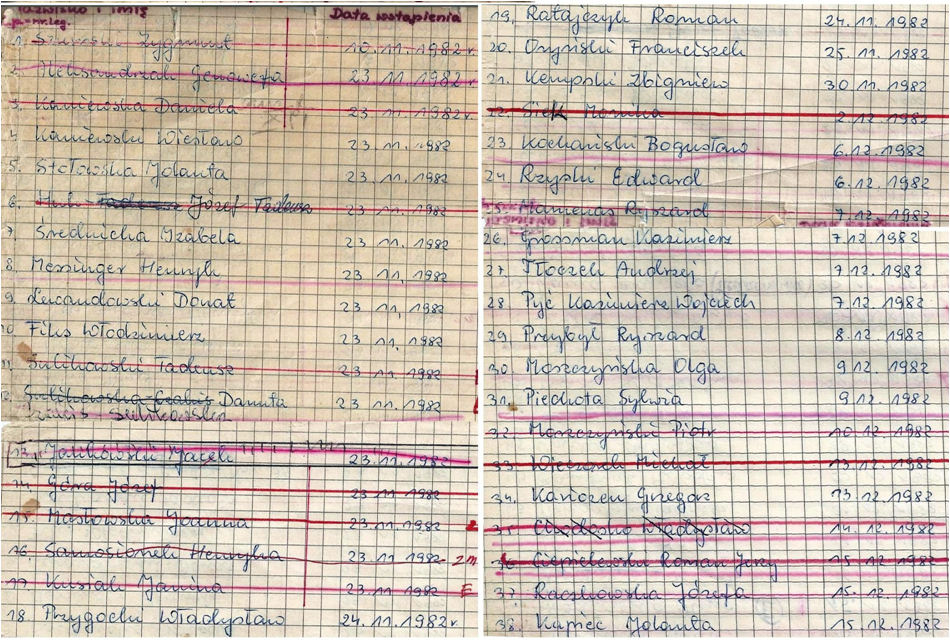 Nazwisko i imię Data wstąpienia
ja=nr.leg.
1. Zygmunt 10.11.1982 r.
2. Aleksandrzak Genowefa 23.11.1982 r.
3. Kaniewska Daniela 23.11.1982 r.
4. Kaniewski Wiesław 23.11.1982
5. Stołowska Jolanta 23.11.1982
6. Józef Tadeusz 23.11.1982
7. Średnicka Izabela 23.11.1982
8. Messinger Henryk 23.11.1982
9. Lewandowski Donat 23.11.1982
10 Filus Włodzimierz 23.11.1982
11. Sulikowski Tadeusz 23.11.1982
12. Sulikowska Danuta 23.11.1982
Sulikowska
13. Jankowski Maciek 23.11.1982
14. Góra Józef 23.11.1982
15. Masłowska Joanna 23.11.1982
16. Samosionek Henryka 23.11.1982
17. Kusiak Janina 23.11.1982
18 Przygocki Władysław 24.11.1982 r
19. Ratajczyk Roman 24.11.1982
20. Oryński Franciszek 25.11.1982
21. Kempski Zbigniew 30.11.1982
22. Siek Monika 2.12.1982
23 Kochański Bogusław 6.12.1982
24 Rzyski Edward 6.12.1982
25 Ryszard 7.12.1982
26. Grossman Kazimierz 7.12.1982
27. Tłoczek Andrzej 7.12.1982
28 Pyć Kazimierz Wojciech 7.12.1982
29. Przybył Ryszard 8.12.1982
30. Moszczyńska Olga 9.12.1982
31. Piechota Sylwia 9.12.1982
32. Moszczyński Piotr 10.12.1982
33. Wieczorek Michał 13.12.1982
34. Kończen Grzegorz 13.12.1982
35. Władysław 14.12.1982
36. Ciepielewski Roman Jerzy 15.12.1982
37. Raczkowska Józefa 15.12.1982
38. Kupiec Jolanta 15.12.1982